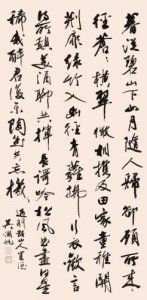 暮從碧山下山月隨人歸卻顧所來
徑蒼蒼橫翠微相攜及田家童稚開
荊扉綠竹入幽徑青蘿拂行衣歡言
得所憩美酒聊共揮長歌吟松風曲盡河星
稀我醉君復樂陶然共忘機